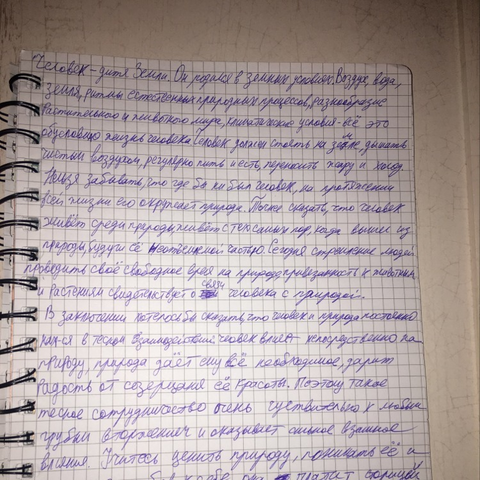 Человек - дитя Земли. Он родился в земных условиях. Воздух, вода,
земля, ритмы естественных природных процессов, разнообразие
растительного и животного мира, климатические условия - всё это
обусловило жизнь человека. Человек должен стоять на земле, дышать
чистым воздухом, регулярно пить и есть, переносить жару и холод.
Нельзя забывать, что где бы ни был человек, на протяжении
всей жизни его окружает природа. Можно сказать, что человек
живёт среди природы живёт с тех самых пор, когда вышел из
природы, будучи её неотъемлемой частью. Сегодня стремление людей
проводить своё свободное время на природе, привязанность к животным
и растениям свидетельствует о связи человека с природой.
В заключении хотелось бы сказать, что человек и природа постоянно
нах-ся в тесном взаимодействии, человек влияет непосредственно на
природу, природа даёт ему всё необходимое, дарит
радость от созерцания её красоты. Поэтому такое
тесное сотрудничество очень чувствительно к любым
грубым вторжениям и оказывает сильное взаимное
влияния. Учитесь ценить природу, понимать её и
она платит